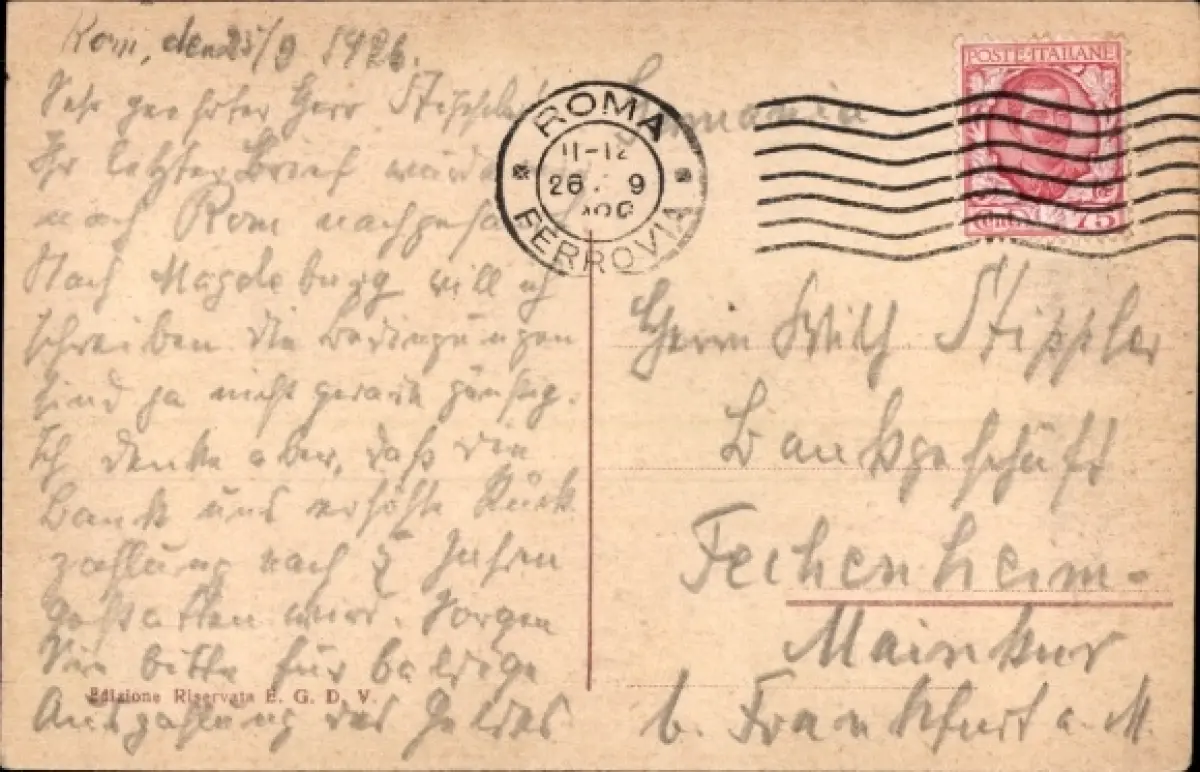 Rom, den 25/9 1926.
Sehr geehrter Herr Stippler
Ihr letzter Brief wurde
nach Rom nachgesandt
Nach Magdeburg will ich
schreiben die Bedingungen
sind ja nicht gerade günstig.
Ich denke aber, daß die
Bank uns erhöhte Rück
zahlung nach 5 Jahren
gestatten wird. Sorgen
Sie bitte für baldige
Auszahlung des Geldes
Edizione Riservata E. G. D. V.
Germania
ROMA
11-12
26 . 9
FERROVIA
POSTE·ITALIANE
Cent. 75
Herrn Wilh Stippler
Bankgeschäft
Fechenheim-
Mainkur
b. Frankfurt a. M.